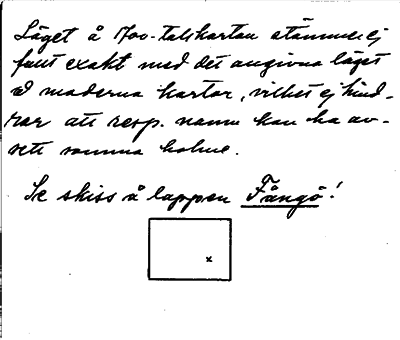 Läget å 700-talskartan stämmer ej
fullt exakt med det angivna läget
å moderna kartor, vilket ej hind-
rar att resp. namn kan ha av-
sett samma holme.
Se skiss å lappen Fångö!
x